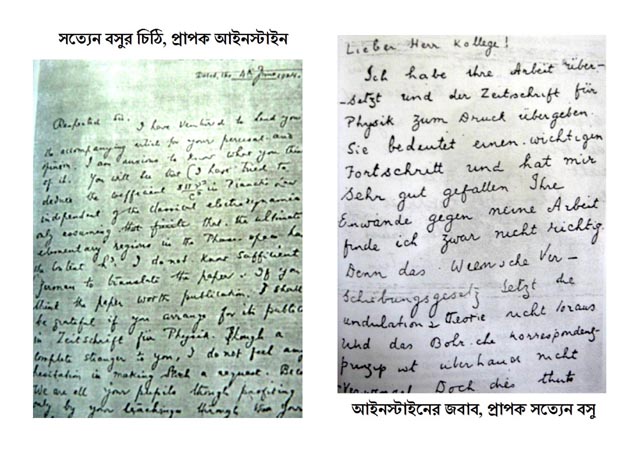 সত্যেন বসুর চিঠি, প্রাপক আইনস্টাইন
Dacca, the 4th June 1924.
Respected Sir, I have ventured to send you
the accompanying article for your perusal and
opinion. I am anxious to know what you think
of it. You will see that I have tried to
deduce the coefficient in Planck's law
independent of the classical electrodynamics
only assuming that the ultimate
elementary regions in the Phase space has
the content h³. I do not know sufficient
german to translate the paper. If you
think the paper worth publication, I shall
be grateful if you arrange for its publication
in Zeitschrift für Physik. Though a
complete stranger to you, I do not feel any
hesitation in making such a request. Because
We are all your pupils though profiting
only by your teachings through your
Lieber Herr Kollege!
Ich habe Ihre Arbeit über-
-setzt und der Zeitschrift für
Physik zum Druck übergeben.
Sie bedeutet einen wichtigen
Fortschritt und hat mir
Sehr gut gefallen Ihre
Einwände gegen meine Arbeit
finde ich zwar nicht richtig.
Denn das Wiensche Ver-
Schiebungsgesetz setzt die
undulations Theorie nicht voraus
und das Bohr.che Korrespondenz-
prinzip ist überhaupt nicht
Doch dies thuts
আইনস্টাইনের জবাব, প্রাপক সত্যেন বসু